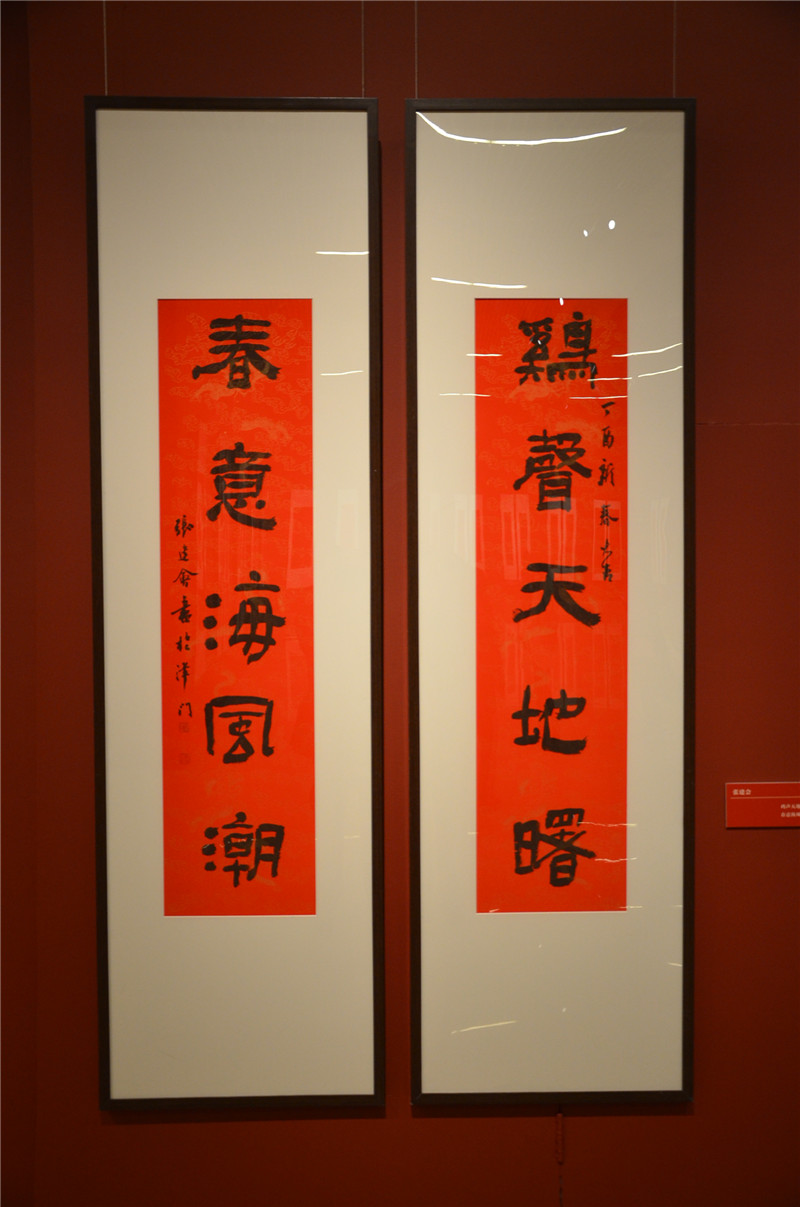 鷄聲天地曙
丁酉新春大吉
春意海風潮
張建會書於津門
張建会